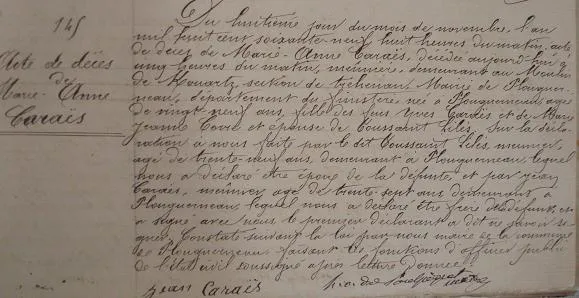 145
Acte de décès
de
Marie-Anne
Caraës
Du huitième jour du mois de novembre, l'an
mil huit cent soixante-neuf huit heures du matin, acte
de décès de Marie-Anne Caraës, décédée aujourd'hui à
cinq heures du matin, meunière, demeurant au Moulin
de Mouartz, section de Tréhénan, Mairie de Plouguer-
neau, département du finistère née à Plouguerneau, agée
de vingt-neuf ans, fille des feus Yves Caraës et de Marie
Jeanne et épouse de Toussaint Lilès, sur la décla-
ration à nous faite par le dit Toussaint Lilès, meunier,
agé de trente-neuf ans, demeurant à Plouguerneau, lequel
nous a déclaré être époux de la défunte, et par Jean
Caraës, meunier, agé de trente-sept ans demeurant à
Plouguerneau lequel nous a déclaré être frère de la défunte, et
a signé avec nous le premier déclarant a dit ne savoir si-
gner, Constaté suivant la loi par nous maire de la commune
de Plouguerneau faisant les fonctions d'officier public
de l'état civil soussigné après lecture donnée.
Jean Caraës